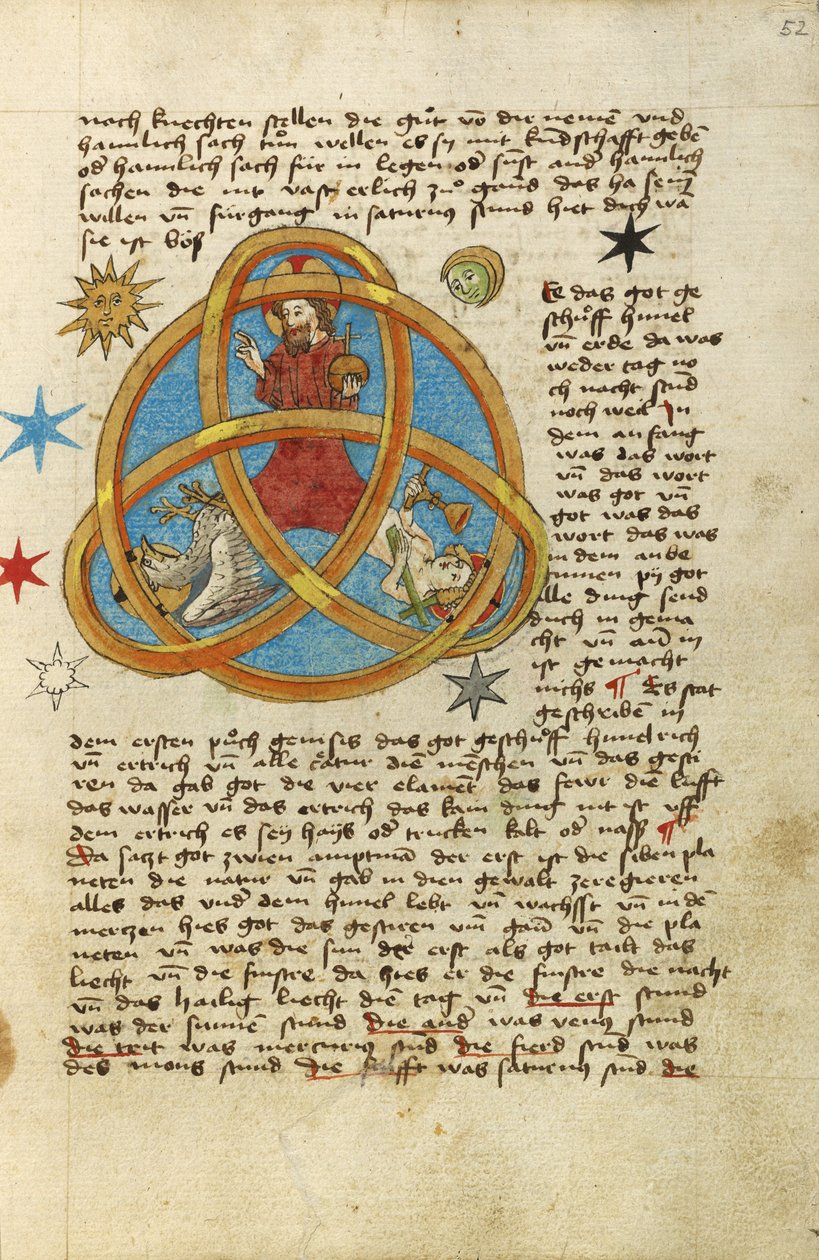 52
nach knechten stellen die gůt vō dir nemē vnd
haimlich sach tůn wellen es sy mit kundschafft gebē
od̄ haimlich sach für in legen od̄ sunst and̄ haimlich
sachen die nit vast erlich zů gand das ha seinē
willen vn̄ fürgang in saturnus stund hiet dich wā
sie ist bös
Ee das got ge
schůff himel
vn̄ erde da was
weder tag no
ch nacht stund
noch weil In
dem anfang
was das wort
vn̄ das wort
was got vn̄
got was das
wort das was
in dem anbe
ginnen pÿ got
alle ding send
durch in gema
cht vn̄ an in
ist gemacht
nichs ¶ Es stat
geschribē in
dem ersten půch genisis das got geschůff himelrich
vn̄ ertrich vn̄ alle creatur diē mēschen vn̄ das gesti
ren da gab got die vier elamēt das fewr diē lufft
das wasser vn̄ das ertrich das kain ding nit ist vff
dem ertrich es seÿ haÿs od̄ trucken kalt od̄ nass ¶
Da sazt got zwien amptmā der erst ist die siben pla
neten die natur vn̄ gab in dien gewalt zeregieren
alles das vnd̄ dem himel lebt vn̄ wachsst vn̄ in dē
merczen hies got das gestiren vm gān vn̄ die pla
neten vn̄ was die sun der erst als got tailt das
liecht vn̄ die finstre da hies er die finstre die nacht
vn̄ das hailig liecht diē tag vn̄ die erst stund
was der sunnē stund die and̄ was venus stund
die trit was mercurius stūd die fierd stūd was
des mons stund die fünfft was saturnus stūd die